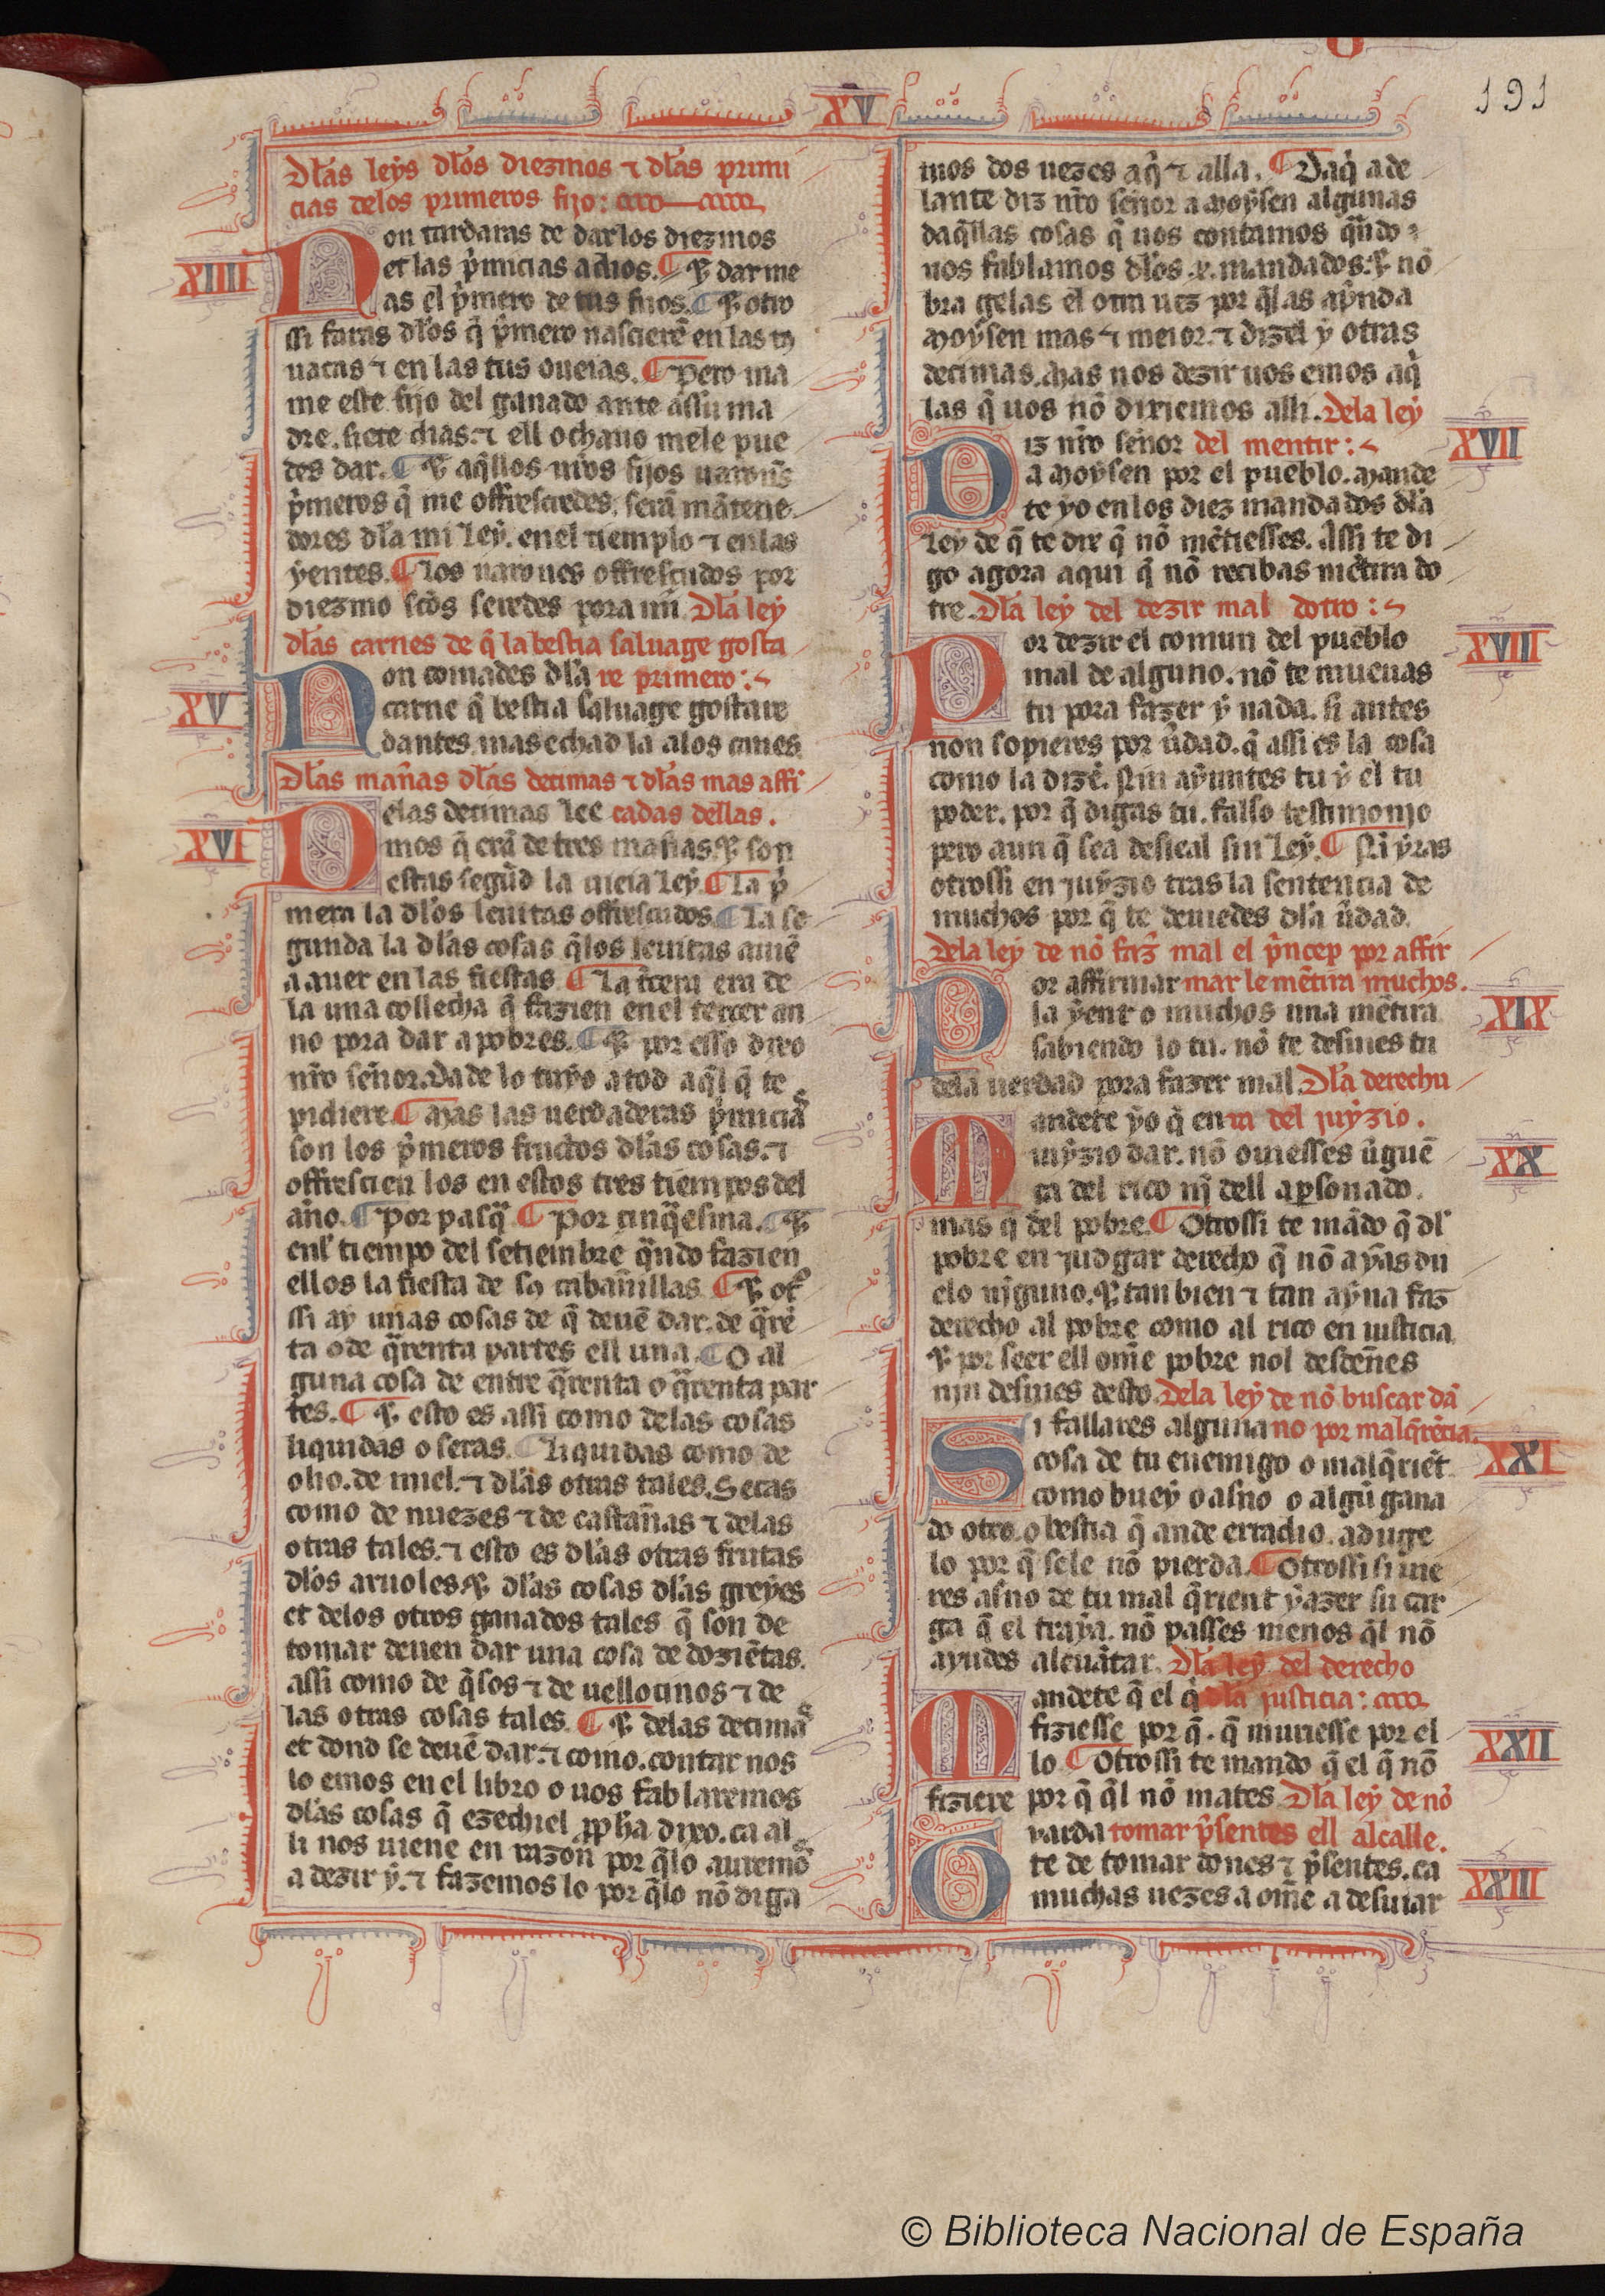 XV
191
Dlas leys dlos diezmos ⁊ dlas primi
cias delos primeros fijo:
XIIII
Non tardaras de dar los diezmos
et las pͥmicias a dios. ¶ E dar me
as el pͥmero de tus fijos. ¶ E otro
ssi faras dlos q̃ pͥmero nascierẽ en las tus
uacas ⁊ en las tus oueias. ¶ Pero ma
me este fijo del ganado ante assu ma
dre. siete dias. ⁊ ell ochauo mele pue
des dar. ¶ E aq̃llos uros fijos uarones
pͥmeros q̃ me offresciredes. serã mãtene
dores dla mi ley. en el tiemplo ⁊ en las
yentes. ¶ Los uarones offrescudos por
diezmo scõs seredes pora mi. Dla ley
dlas carnes de q̃ la bestia saluage gosta
XV
Non comades dla re primero:
carne q̃ bestia saluage gostare
dantes. mas echad la a los canes
Dlas mañas dlas decimas ⁊ dlas mas affi
XVI
Delas decimas lee cadas dellas.
mos q̃ erã de tres mañas. E son
estas segũd la uieia ley. ¶ La pͥ
mera la dlos leuitas offrescudos. ¶ La se
gunda la dlas cosas q̃ los leuitas auiẽ
a auer en las fiestas. ¶ La tcera era de
la una collecha q̃ fazien en el tercer an
no pora dar a pobres. ¶ E por esso dixo
nro señor. Da de lo tuyo a tod aq̃l q̃ te
pidiere. ¶ Mas las uerdaderas pͥmicias
son los pͥmeros fructos dlas cosas. ⁊
offrescien los en estos tres tiempos del
año. ¶ Por pasq̃. ¶ Por cinq̃esma. ¶ E
enl tiempo del setiembre q̃ndo fazien
ellos la fiesta de sus cabañillas. ¶ E otro
ssi ay unas cosas de q̃ deuẽ dar. de q̃rẽ
ta o de q̃renta partes ell una. ¶ O al
guna cosa de entre q̃renta o q̃renta par
tes. ¶ E esto es assi como delas cosas
liquidas o secas. ¶ Liquidas como de
olio. de miel. ⁊ dlas otras tales. Secas
como de nuezes ⁊ de castañas ⁊ delas
otras tales. ⁊ esto es dlas otras frutas
dlos aruoles. E dlas cosas dlas greyes
et delos otros ganados tales q̃ son de
tomar deuen dar una cosa de doziẽtas.
assi como de q̃sos ⁊ de uellocinos ⁊ de
las otras cosas tales. ¶ E delas decimas
et dond se deuẽ dar. ⁊ como. contar nos
lo emos en el libro o uos fablaremos
dlas cosas q̃ ezechiel ppha dixo. ca al
li nos uiene en razon por q̃ lo auremos
a dezir y. ⁊ fazemos lo por q̃ lo nõ diga
mos dos uezes aq̃ ⁊ alla. ¶ Daq̃ ade
lante diz nro señor a Moysen algunas
daq̃llas cosas q̃ uos contamos q̃ndo
uos fablamos dlos .x. mandados. E nõ
bra gelas el otra uez por q̃ las aprnda
Moysen mas ⁊ meior. ⁊ dizel y otras
decimas. Mas nos dezir uos emos aq̃
las q̃ uos nõ dixiemos alli. Dela ley
XVII
Diz nro señor del mentir:
a Moysen por el pueblo. Mande
te yo en los diez mandados dla
ley de q̃ te dix q̃ nõ mẽtiesses. Assi te di
go agora aqui q̃ nõ recibas mẽtira do
tre. Dla ley del dezir mal dotro:
XVIII
Por dezir el comun del pueblo
mal de alguno. nõ te mueuas
tu pora fazer y nada. si antes
non sopieres por ũdad. q̃ assi es la cosa
como la dizẽ. Nin ayuntes tu y el tu
poder. por q̃ digas tu. falso testimonio
pero aun q̃ sea desleal sin ley. ¶ Ni yras
otrossi en iuyzio tras la sentencia de
muchos por q̃ te demedes dla ũdad.
Dela ley de nõ faz mal el pͥncep por affir
XIX
Por affirmar mar le mẽtira muchos.
la yent o muchos una mẽtira
sabiendo lo tu. nõ te desuies tu
dela uerdad pora fazer mal. Dla derechu
XX
Mandete yo q̃ en ra del juyzio.
iuyzio dar. nõ ouiesses ũguẽ
ça del rico nj dell apsonado.
mas q̃ del pobre. ¶ Otrossi te mãdo q̃ dl
pobre en judgar derecho q̃ nõ ayas du
elo nĩguno. E tan bien ⁊ tan ayna faz
derecho al pobre como al rico en iusticia
E por seer ell ome pobre nol desdeñes
nin desuies desto. Dela ley de nõ buscar dã
XXI
Si fallares alguna no por malq̃rẽcia.
cosa de tu enemigo o malq̃riẽt
como buey o asno o algũ gana
do otro. o bestia q̃ ande erradio. aduge
lo por q̃ sele nõ pierda. ¶ Otrossi si uie
res asno de tu mal q̃rient yazer su car
ga q̃ el traya. nõ passes menos q̃l nõ
ayudes a leuãtar. Dla ley del derecho
XXII
Mandete q̃ el q̃ dla justicia:
fiziesse por q̃. q̃ muriesse por el
lo. ¶ Otrossi te mando q̃ el q̃ nõ
fiziere por q̃ q̃l nõ mates. Dla ley de nõ
XXIII
Guarda tomar pͥsentes ell alcalle.
te de tomar dones ⁊ pͥsentes. ca
muchas uezes a ome a desuiar
© Biblioteca Nacional de España